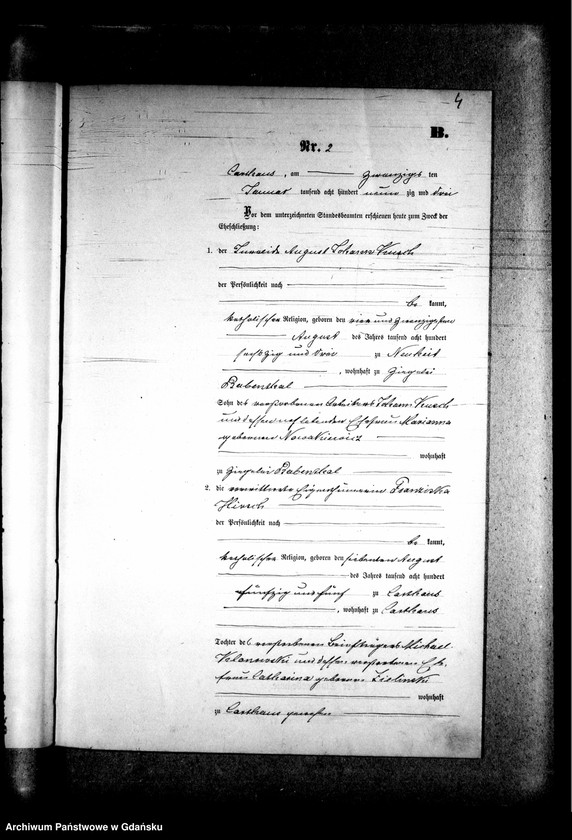 4
B.
Nr. 2
Carthaus, am zwanzigsten
Januar tausend acht hundert neun zig und drei
Vor dem unterzeichneten Standesbeamten erschienen heute zum Zweck der
Eheschließung:
1. der Invalide August Johann
der Persönlichkeit nach
be kannt,
katholischer Religion, geboren den vier und zwanzigsten
August des Jahres tausend acht hundert
sechszig und drei zu
, wohnhaft zu Ziegelei
Rubenthal
Sohn des verstorbenen Arbeiters Johann
und dessen noch lebenden Ehefrau Marianna
geborenen Nowakiewicz
wohnhaft
zu Ziegelei Rubenthal
2. die verwittwete Eigenthümerin Franziska
Hirsch
der Persönlichkeit nach
be kannt,
katholischer Religion, geboren den siebenten August
des Jahres tausend acht hundert
fünfzig und fünf zu Carthaus
, wohnhaft zu Carthaus
Tochter des verstorbenen Briefträgers Michael
und dessen verstorbenen Ehe-
frau Catharina geborenen Zielinski
wohnhaft
zu Carthaus gewesen
Archiwum Państwowe w Gdańsku